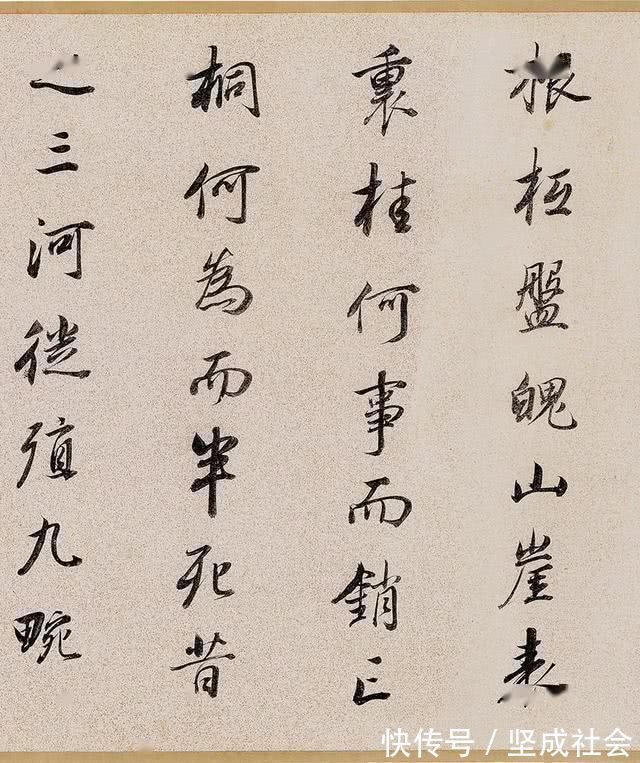 根柢盤魄山崖表
裏桂何事而銷亡
桐何為而半死昔
之三河徙殖九畹
快传号 / 坚成社会